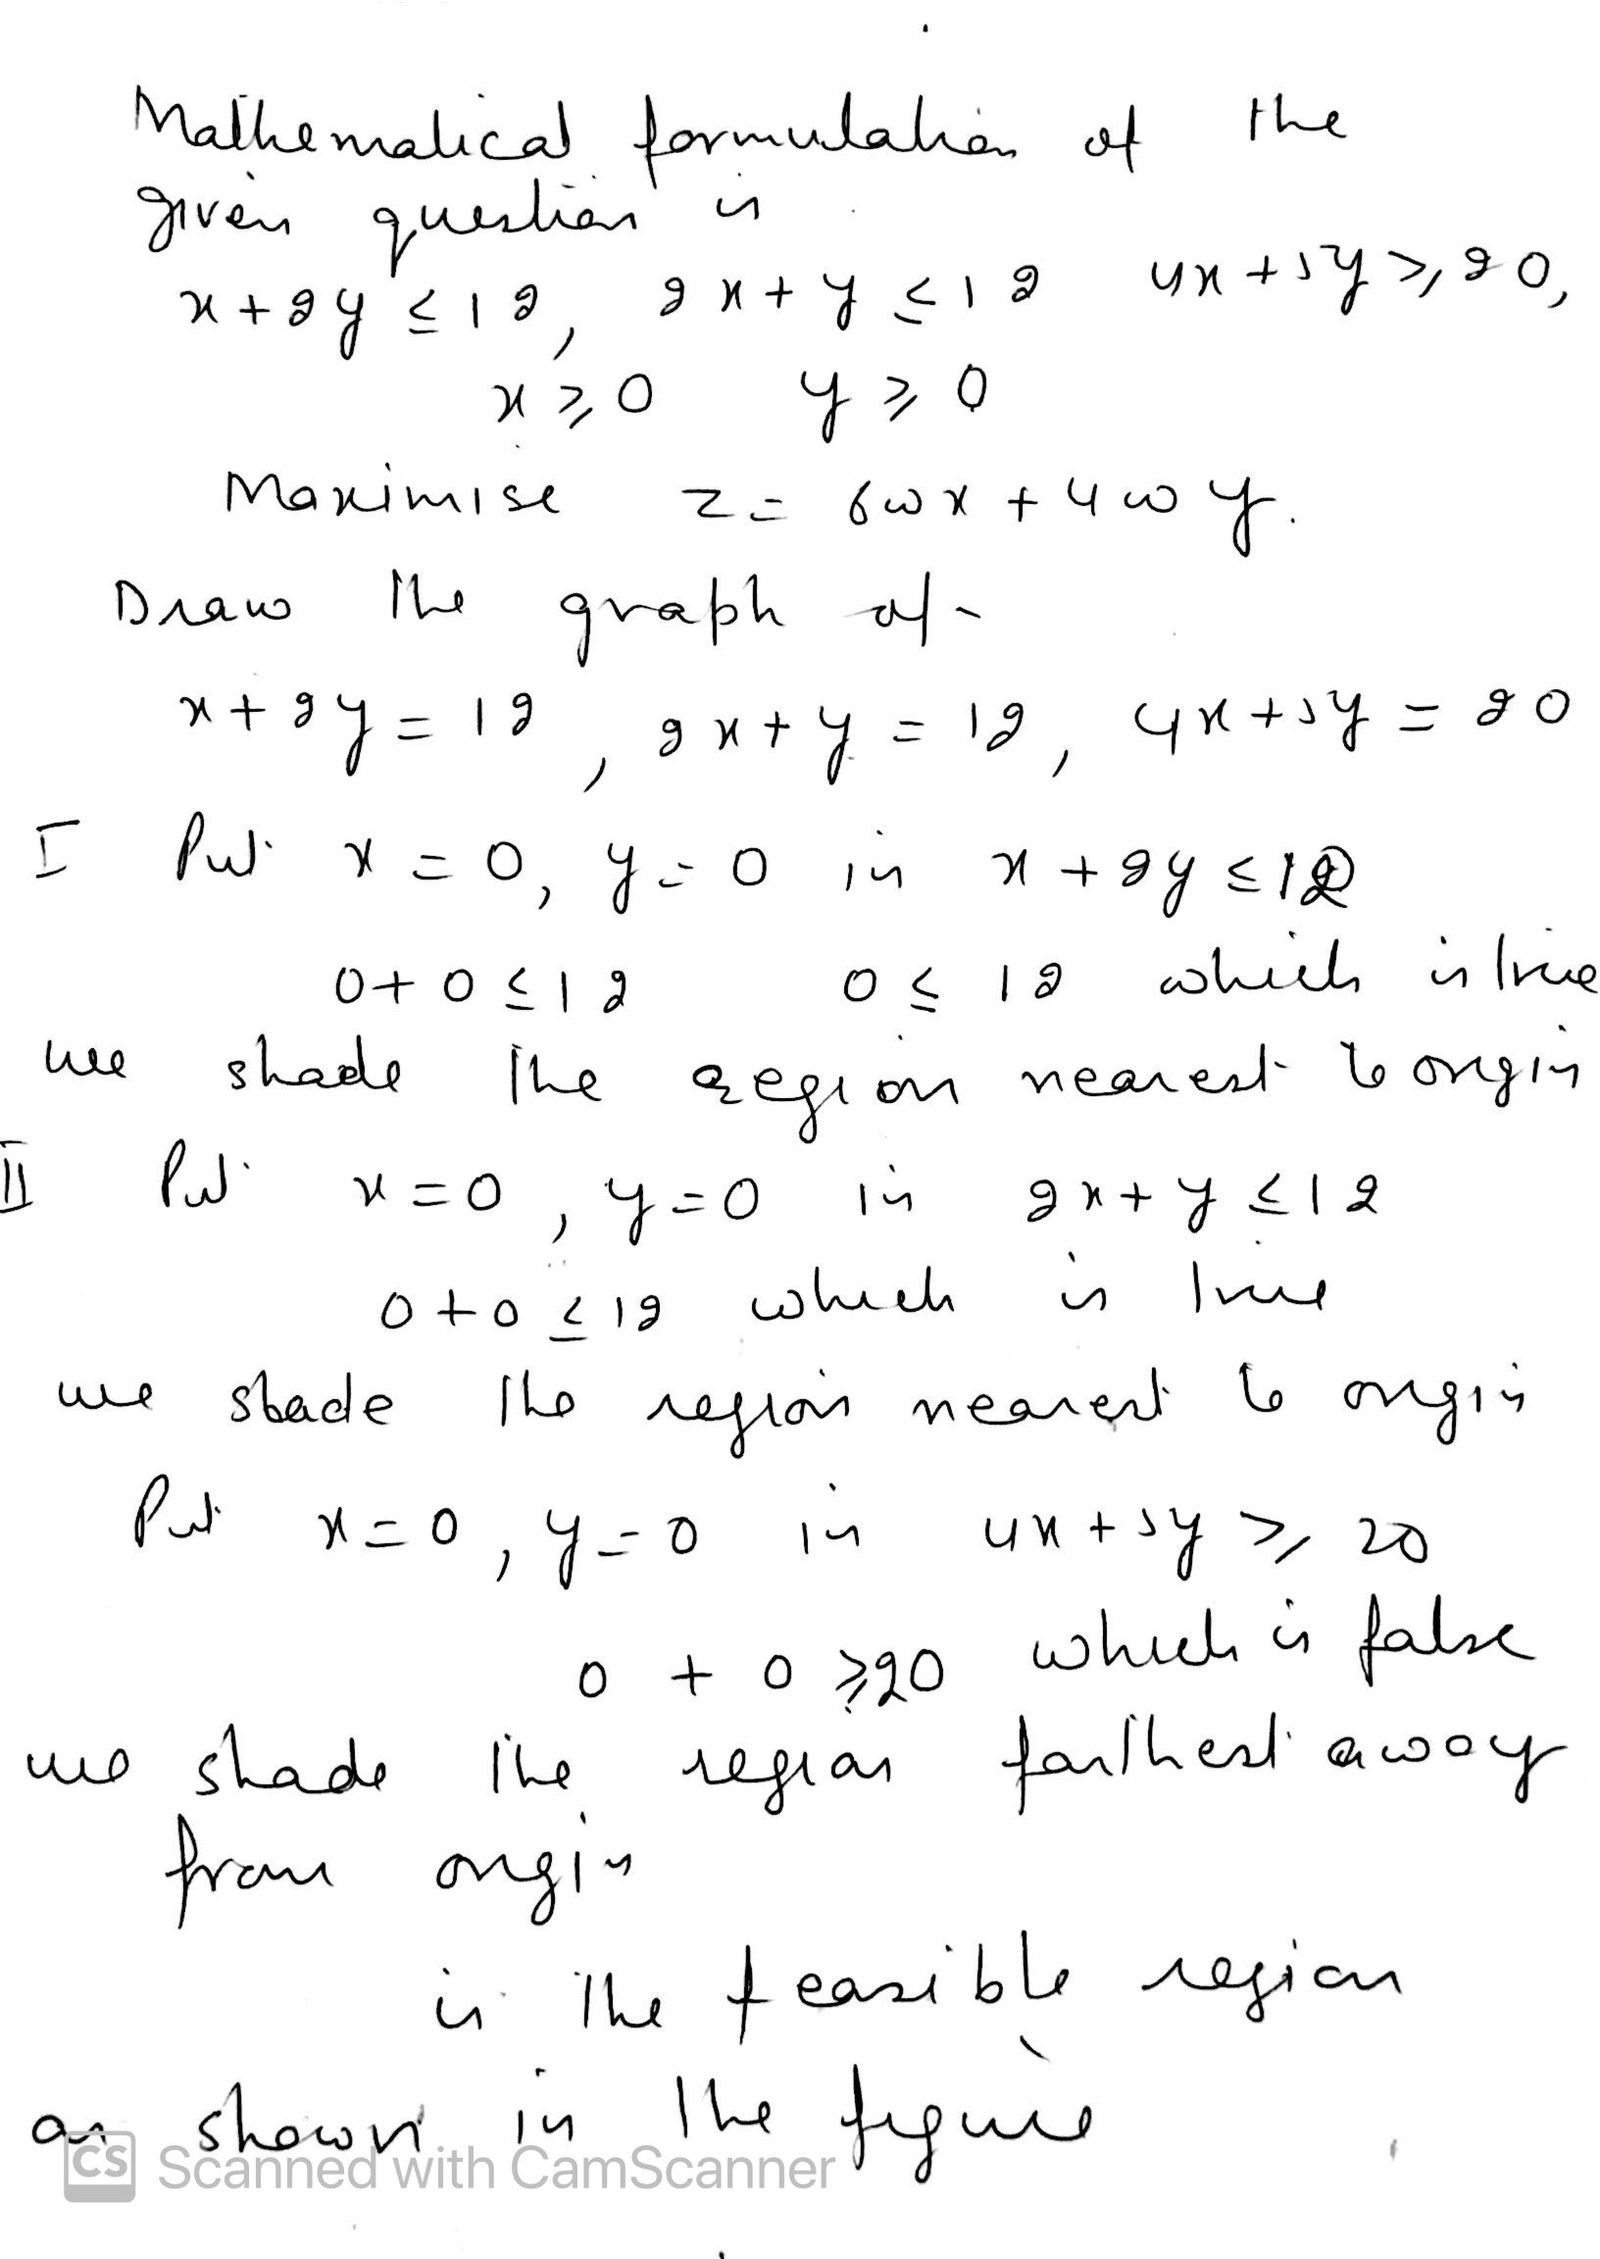 Mathematical formulation of the
given question is
x + 2y ≤ 12, 2x + y ≤ 12 4x + 5y ≥ 20,
x ≥ 0 y ≥ 0
Maximise z = 600x + 400y.
Draw the graph of
x + 2y = 12, 2x + y = 12, 4x + 5y = 20
I Put x = 0, y = 0 in x + 2y ≤ 12
0 + 0 ≤ 12 0 ≤ 12 which is true
we shade the region nearest to origin
II Put x = 0, y = 0 in 2x + y ≤ 12
0 + 0 ≤ 12 which is true
we shade the region nearest to origin
Put x = 0, y = 0 in 4x + 5y ≥ 20
0 + 0 ≥ 20 which is false
we shade the region farthest away
from origin
is the feasible region
as shown in the figure
CS Scanned with CamScanner